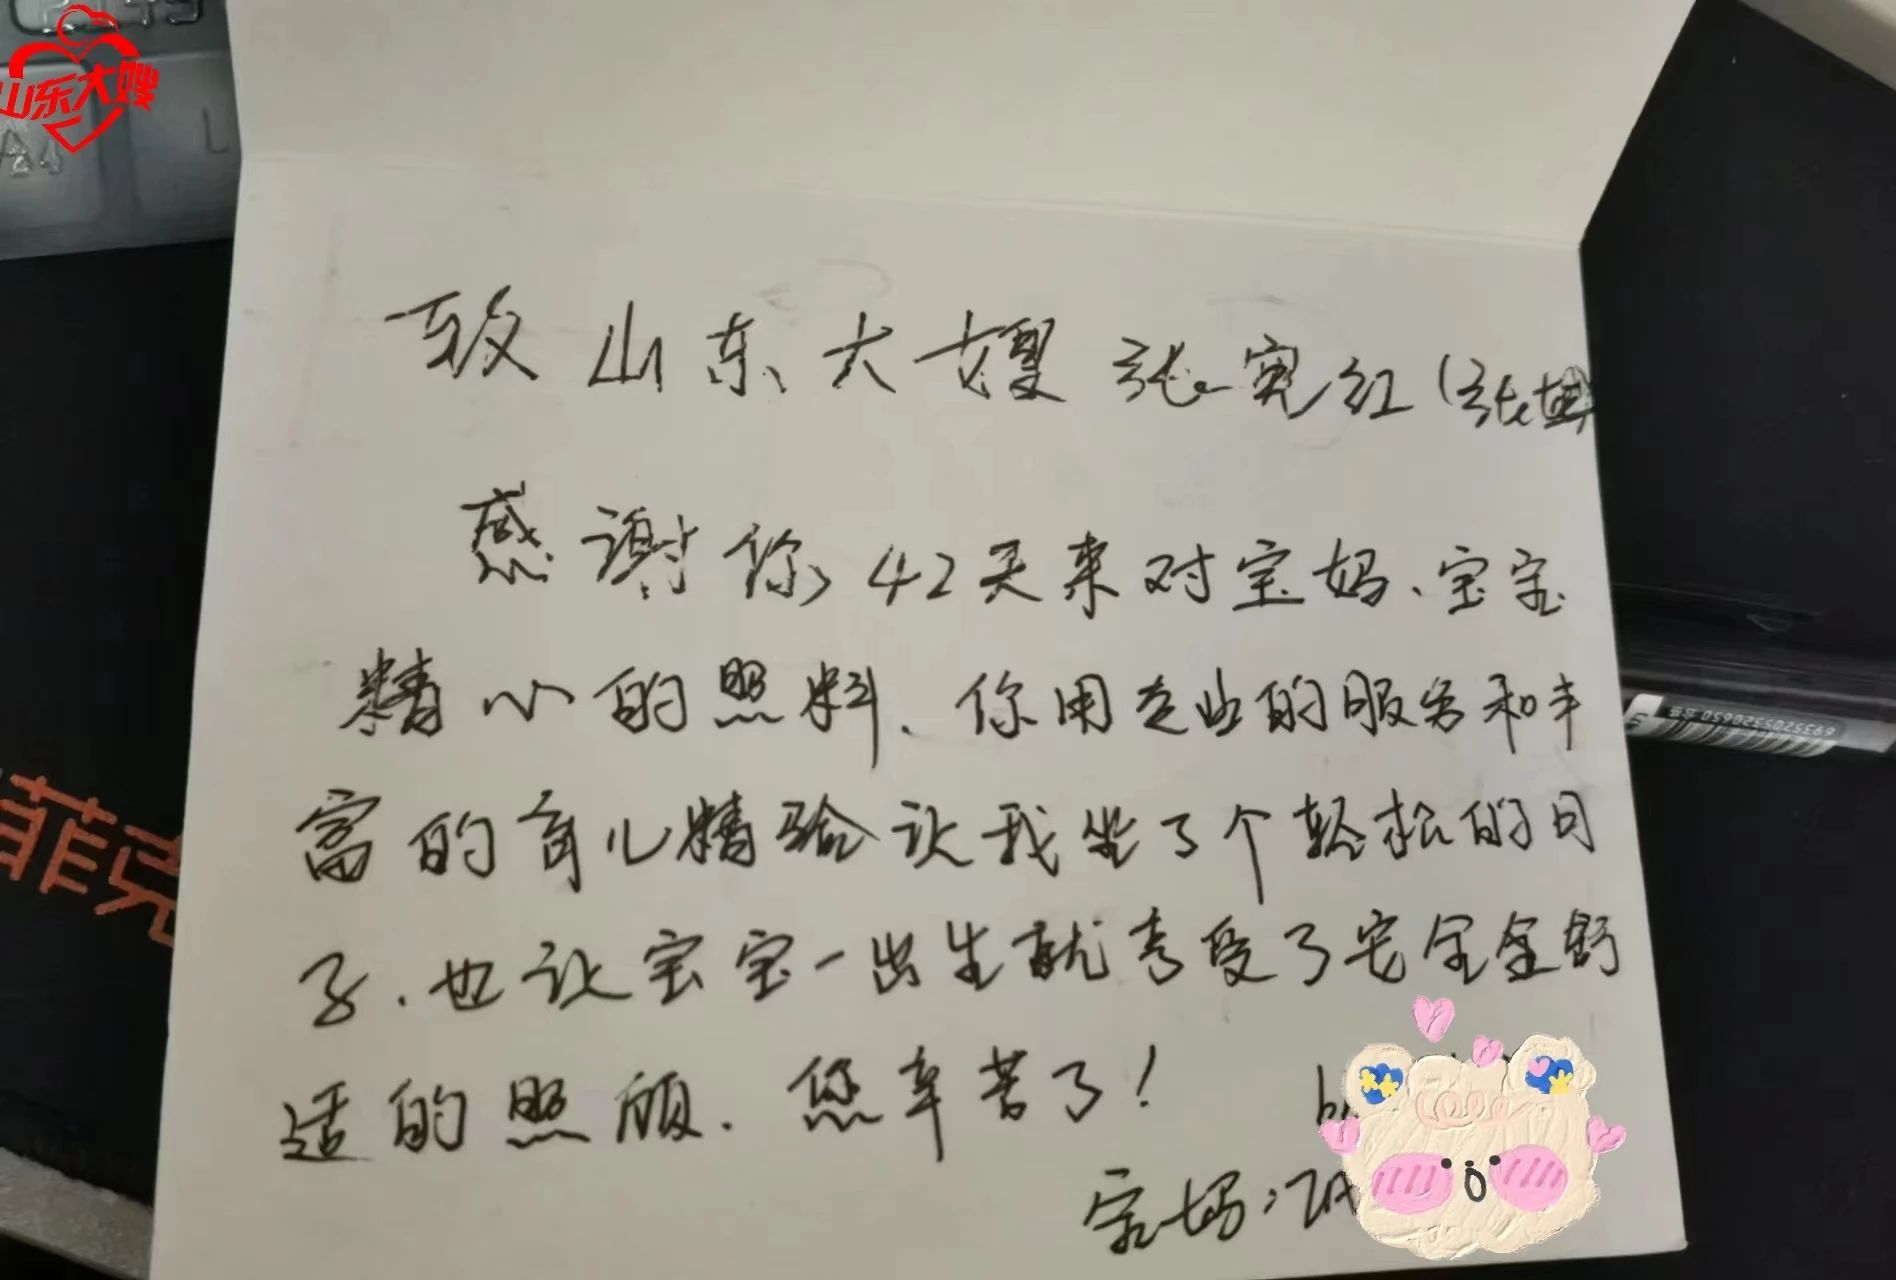 山东大嫂
A4 L
致山东大嫂张宪红(张姐
感谢你42天来对宝妈、宝宝
精心的照料、你用专业的服务和丰
富的育儿精验让我坐了个轻松的月
子.也让宝宝一出生就享受了安全全舒
适的照顾.您辛苦了!
宝妈:
菲克
6932502320650